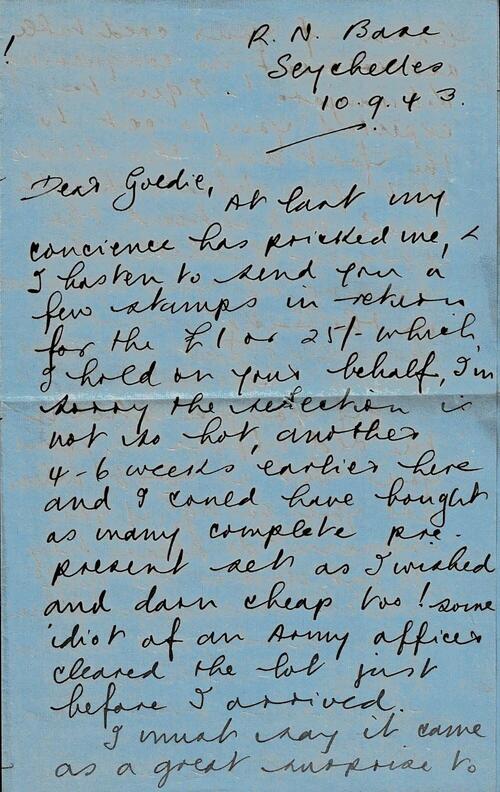 R. N. Base
Seychelles
10.9.43.
Dear Goldie,
At last my
concience has pricked me, &
I hasten to send you a
few stamps in return
for the £1 or 25/- which
I hold on your behalf, I'm
sorry the selection is
not so hot, another
4-6 weeks earlier here
and I could have bought
as many complete pre-
present sets as I wished
and darn cheap too! some
idiot of an Army officer
cleared the lot just
before I arrived.
I must say it came
as a great surprise to